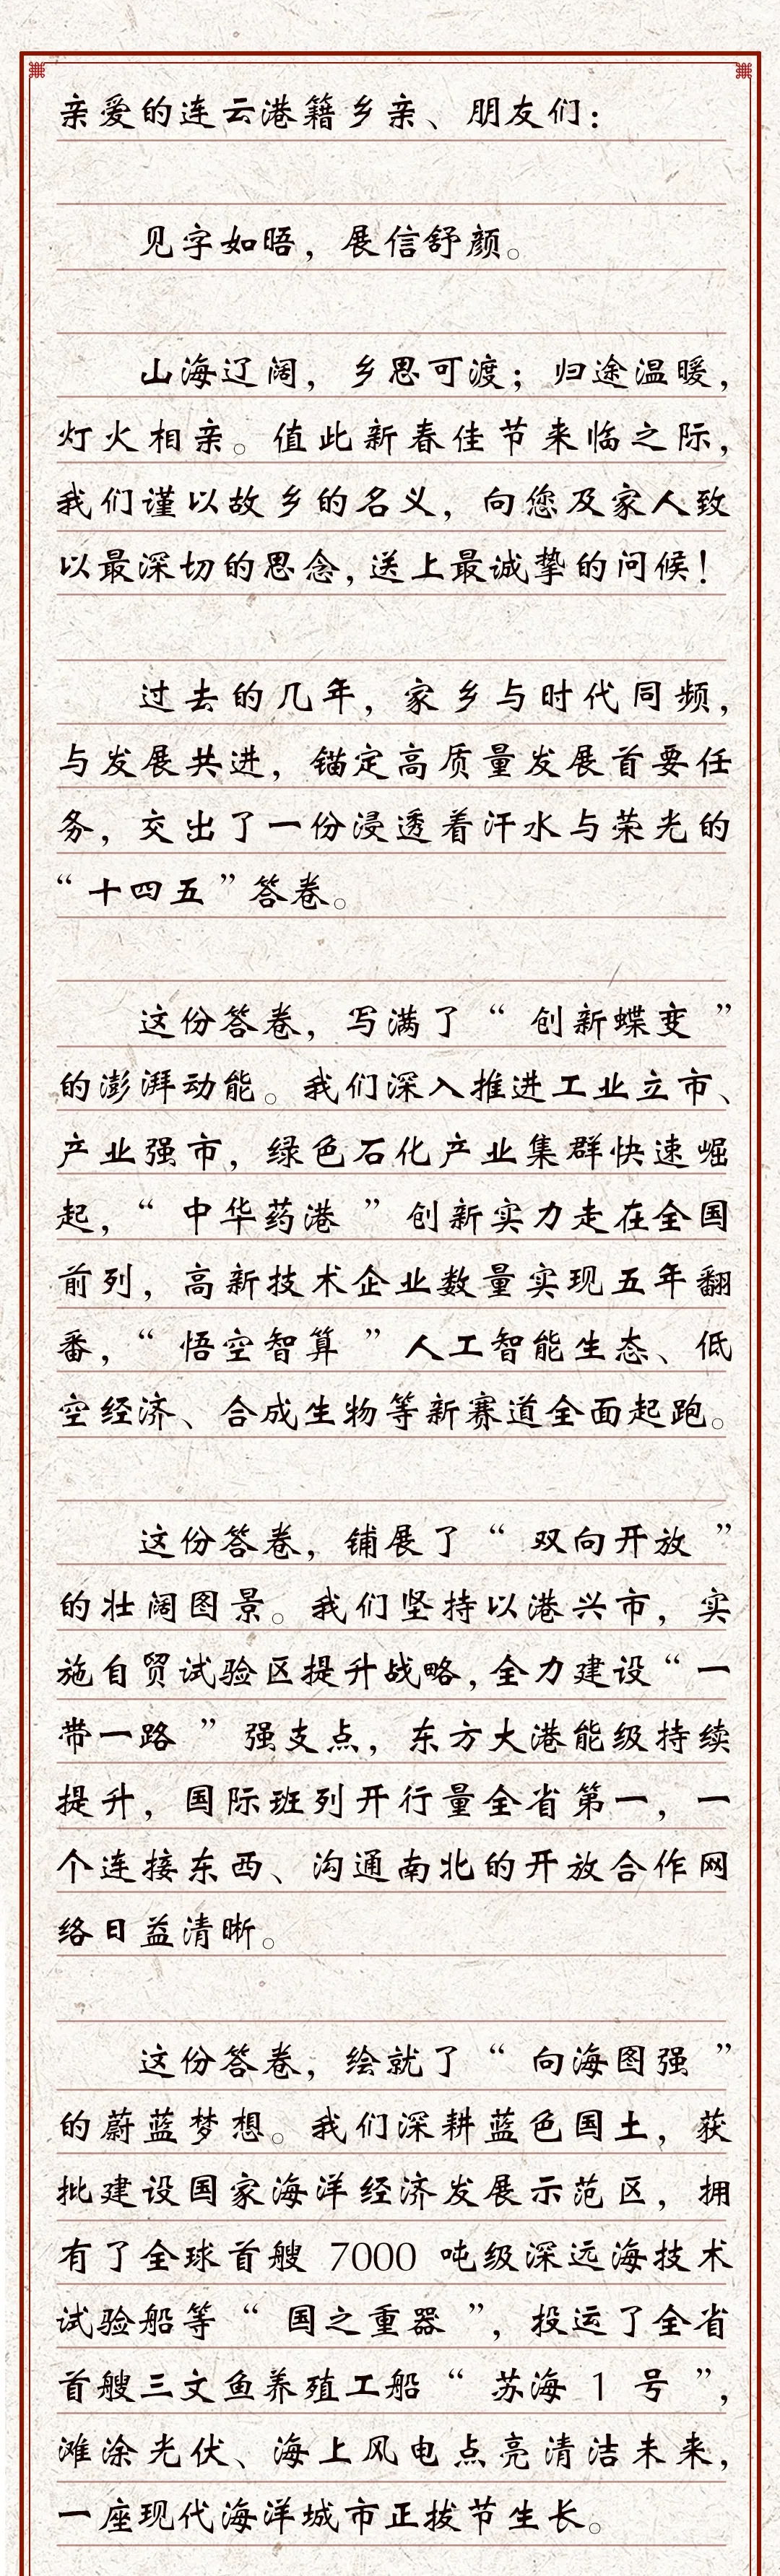 亲爱的连云港籍乡亲、朋友们：
见字如晤，展信舒颜。
山海辽阔，乡思可渡；归途温暖，
灯火相亲。值此新春佳节来临之际，
我们谨以故乡的名义，向您及家人致
以最深切的思念，送上最诚挚的问候！
过去的几年，家乡与时代同频，
与发展共进，锚定高质量发展首要任
务，交出了一份浸透着汗水与荣光的
“十四五”答卷。
这份答卷，写满了“创新蝶变”
的澎湃动能。我们深入推进工业立市、
产业强市，绿色石化产业集群快速崛
起，“中华药港”创新实力走在全国
前列，高新技术企业数量实现五年翻
番，“悟空智算”人工智能生态、低
空经济、合成生物等新赛道全面起跑。
这份答卷，铺展了“双向开放”
的壮阔图景。我们坚持以港兴市，实
施自贸试验区提升战略，全力建设“一
带一路”强支点，东方大港能级持续
提升，国际班列开行量全省第一，一
个连接东西、沟通南北的开放合作网
络日益清晰。
这份答卷，绘就了“向海图强”
的蔚蓝梦想。我们深耕蓝色国土，获
批建设国家海洋经济发展示范区，拥
有了全球首艘 7000 吨级深远海技术
试验船等“国之重器”，投运了全省
首艘三文鱼养殖工船“苏海 1 号”，
滩涂光伏、海上风电点亮清洁未来，
一座现代海洋城市正拔节生长。